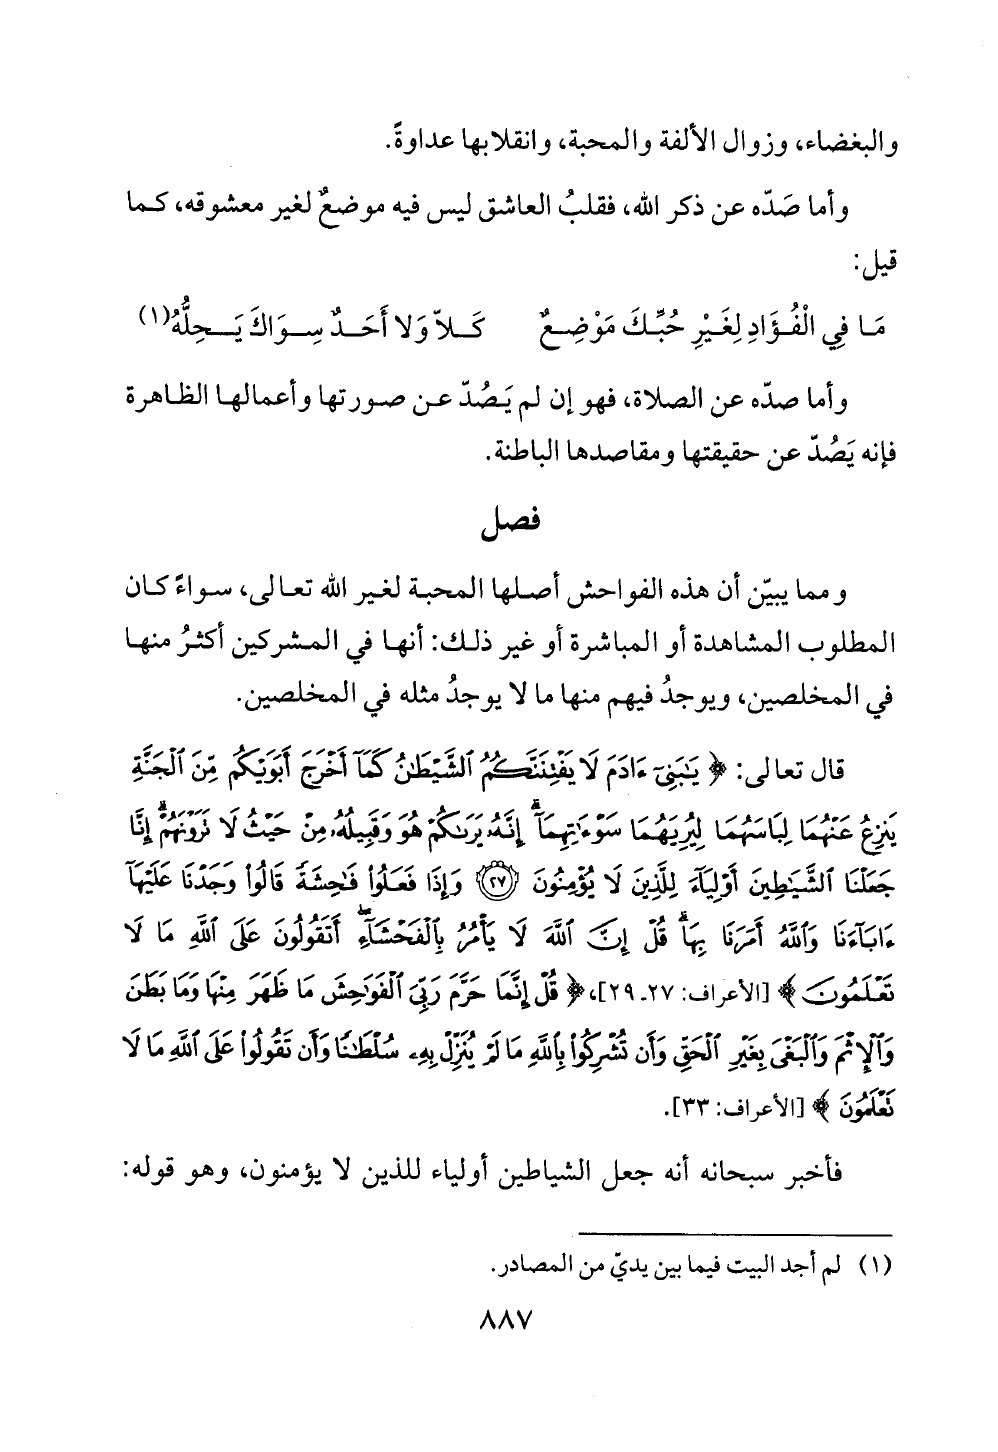 والبغضاء، وزوال الألفة والمحبة، وانقلابها عداوةً.
وأما صَدّه عن ذكر الله، فقلبُ العاشق ليس فيه موضعٌ لغير معشوقه، كـما
قيل:
مَـا فِي الْفُـؤَادِ لِغَـيْرِ حُبِّـكَ مَوْضِـعٌ كَـلاّ وَلا أَحَـدٌ سِـوَاكَ يَـحِلُّهُ(١)
وأما صدّه عن الصلاة، فهو إن لم يَصُدّ عـن صـورتها وأعمالـها الظـاهرة
فإنه يَصُدّ عن حقيقتها ومقاصدها الباطنة.
فصل
ومما يبيّن أن هذه الفواحش أصلـها المحبة لغير الله تعـالى، سـواءً كـان
المطلوب المشاهدة أو المباشرة أو غير ذلـك: أنهـا في المـشركين أكثـرُ منهـا
في المخلصين، ويوجدُ فيهم منها ما لا يوجدُ مثله في المخلصين.
قال تعالى: ﴿ يَٰبَنِىٓ ءَادَمَ لَا يَفْتِنَنَّكُمُ ٱلشَّيْطَٰنُ كَمَآ أَخْرَجَ أَبَوَيْكُم مِّنَ ٱلْجَنَّةِ
يَنزِعُ عَنْهُمَا لِبَاسَهُمَا لِيُرِيَهُمَا سَوْءَٰتِهِمَآ ۗ إِنَّهُۥ يَرَىٰكُمْ هُوَ وَقَبِيلُهُۥ مِنْ حَيْثُ لَا تَرَوْنَهُمْ ۗ إِنَّا
جَعَلْنَا ٱلشَّيَٰطِينَ أَوْلِيَآءَ لِلَّذِينَ لَا يُؤْمِنُونَ ۝٢٧ وَإِذَا فَعَلُوا۟ فَٰحِشَةً قَالُوا۟ وَجَدْنَا عَلَيْهَآ
ءَابَآءَنَا وَٱللَّهُ أَمَرَنَا بِهَا ۗ قُلْ إِنَّ ٱللَّهَ لَا يَأْمُرُ بِٱلْفَحْشَآءِ ۖ أَتَقُولُونَ عَلَى ٱللَّهِ مَا لَا
تَعْلَمُونَ ﴾ [الأعراف: ٢٧ـ ٢٩]، ﴿ قُلْ إِنَّمَا حَرَّمَ رَبِّىَ ٱلْفَوَٰحِشَ مَا ظَهَرَ مِنْهَا وَمَا بَطَنَ
وَٱلْإِثْمَ وَٱلْبَغْىَ بِغَيْرِ ٱلْحَقِّ وَأَن تُشْرِكُوا۟ بِٱللَّهِ مَا لَمْ يُنَزِّلْ بِهِۦ سُلْطَٰنًا وَأَن تَقُولُوا۟ عَلَى ٱللَّهِ مَا لَا
تَعْلَمُونَ ﴾ [الأعراف: ٣٣].
فأخبر سبحانه أنه جعل الشياطين أولياء للذين لا يؤمنون، وهو قوله:
(١) لم أجد البيت فيما بين يديّ من المصادر.
٨٨٧